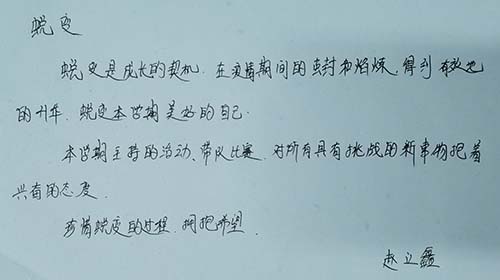 蜕变
蜕变是成长的契机. 在疫情期间的尘封和焰炼, 得到
的升华. 蜕变本学期美好的自己.
本学期主持的活动、带队比赛. 对所有具有挑战的新事物抱着
兴奋的态度.
珍惜蜕变的过程. 拥抱希望.
赵立鑫